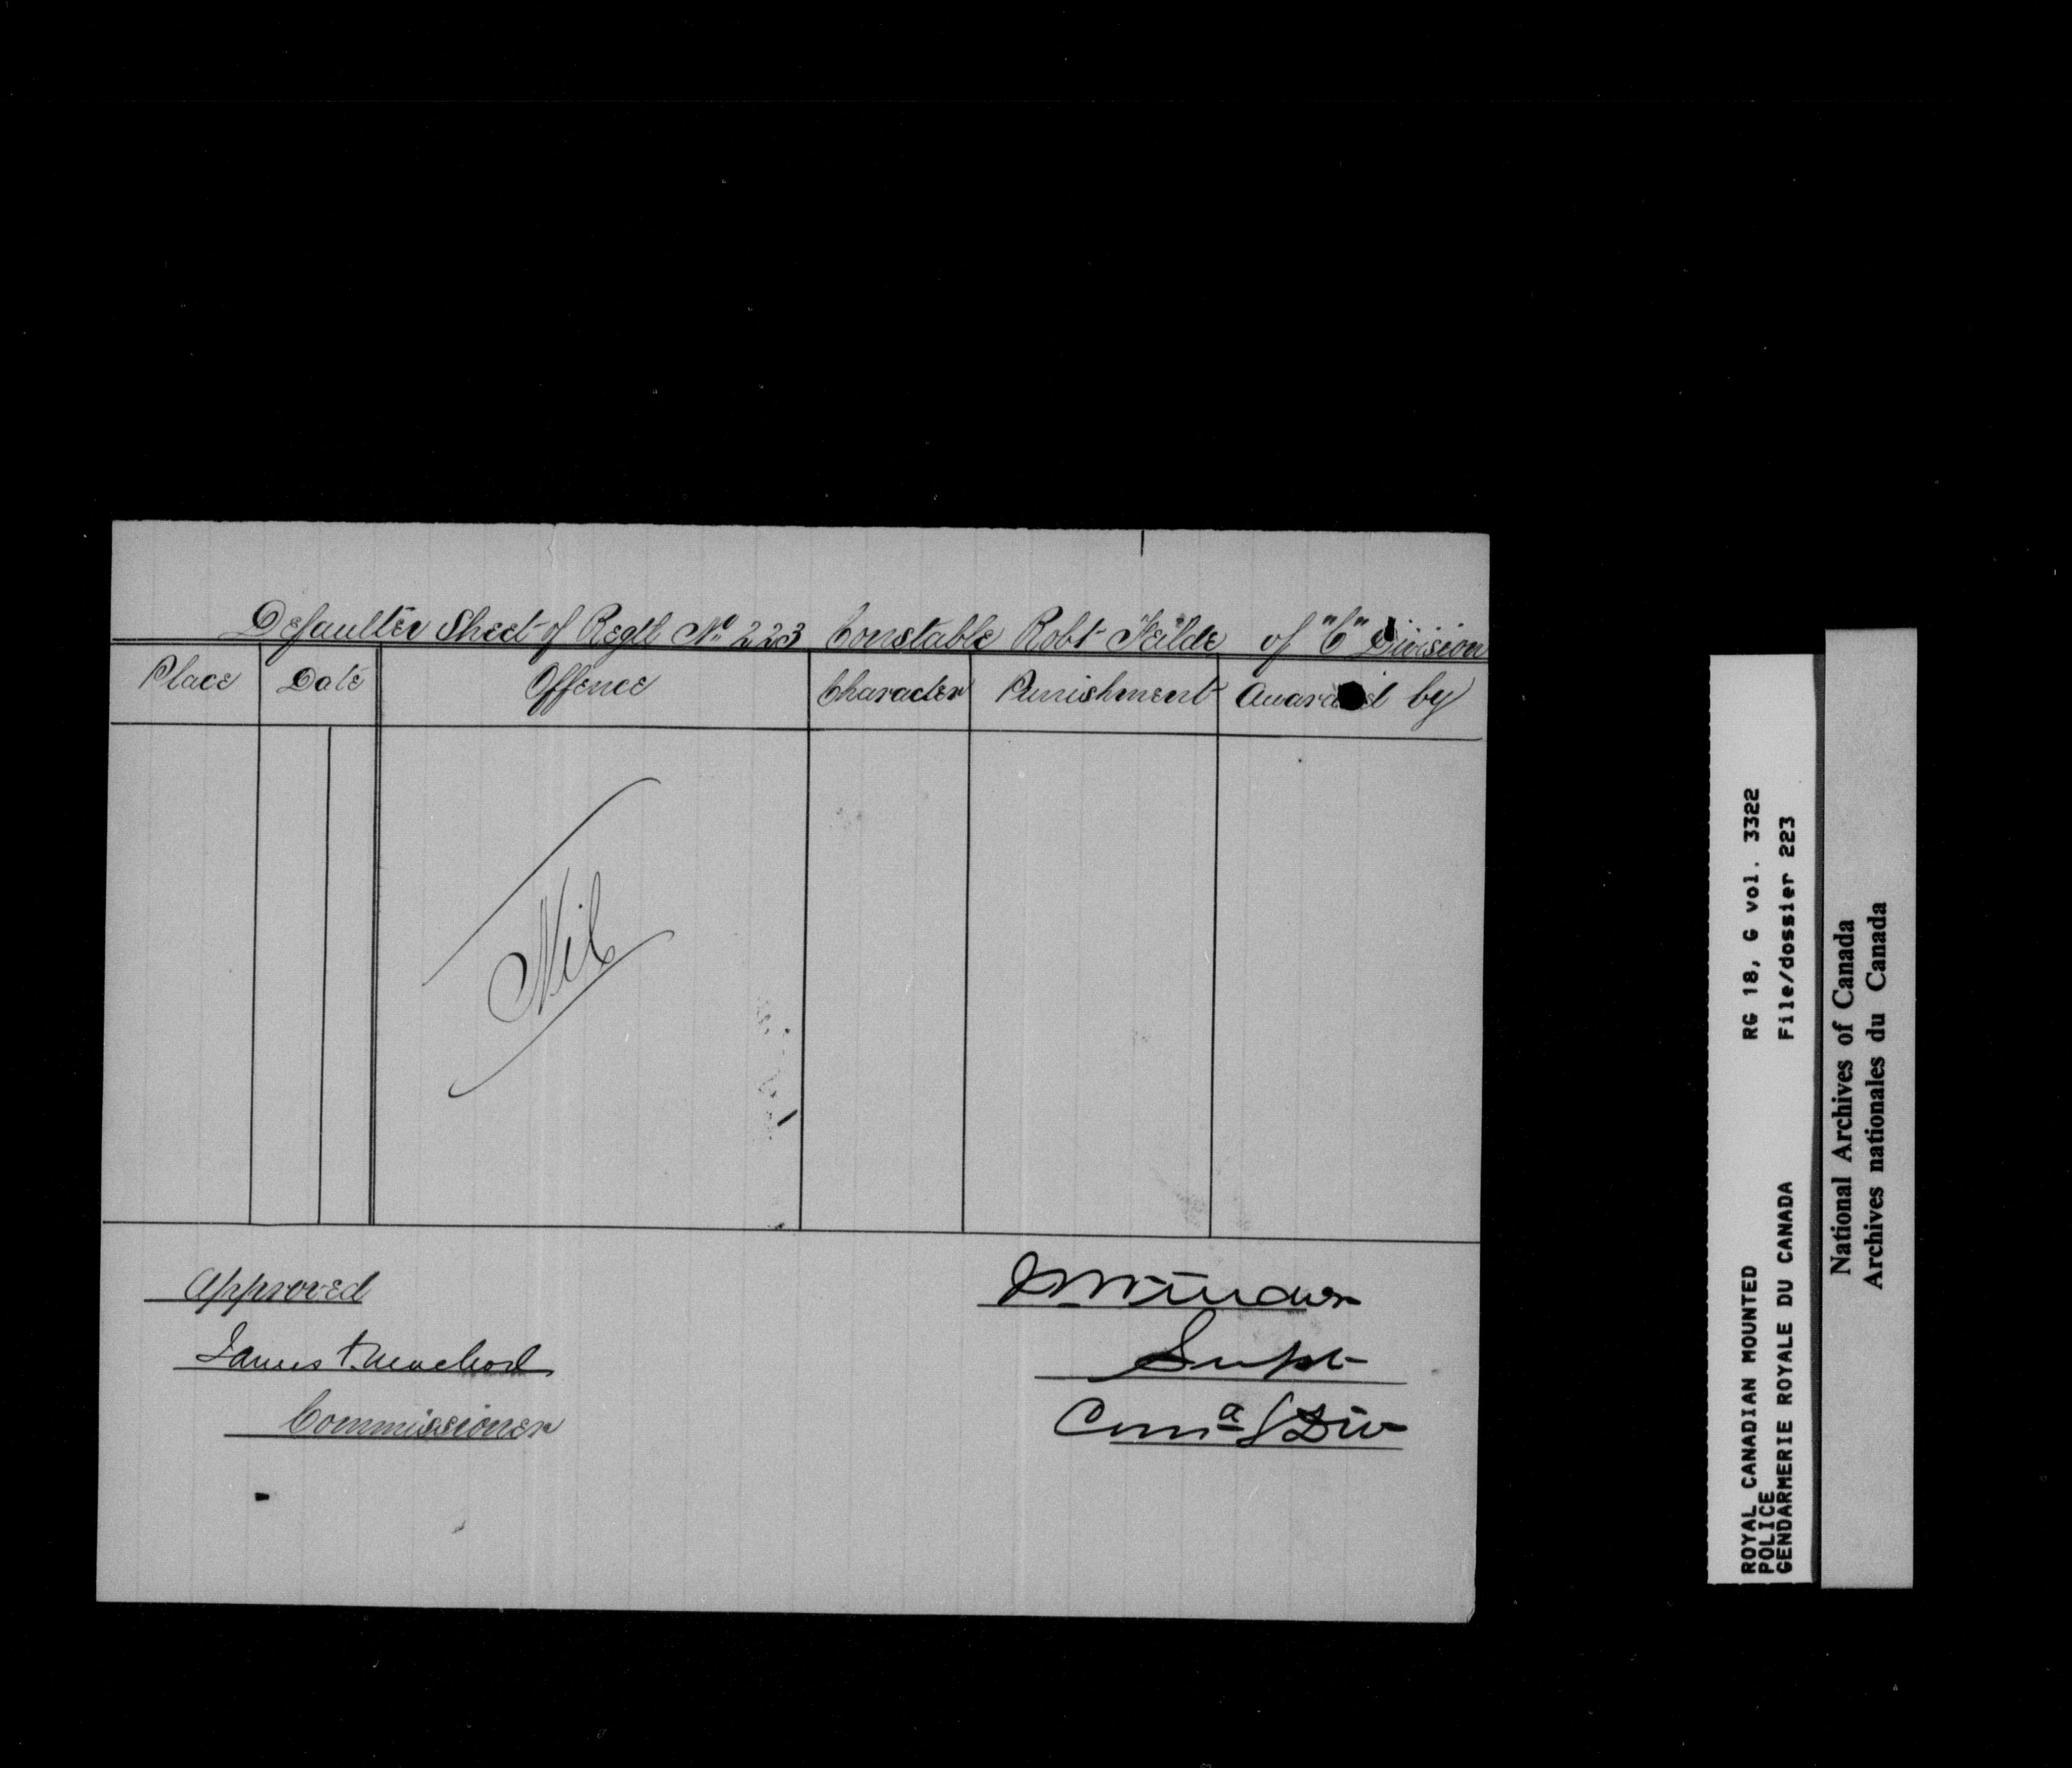 Defaulter Sheet of Regtl No. 223 Constable Robt Feilde of "C" Division
Place Date Offence Character Punishment Awarded by
Nil
Approved
James F. Macleod
Commissioner
Supt
Comg Div
ROYAL CANADIAN MOUNTED RG 18, G vol. 3322
POLICE
GENDARMERIE ROYALE DU CANADA File/dossier 223
National Archives of Canada
Archives nationales du Canada